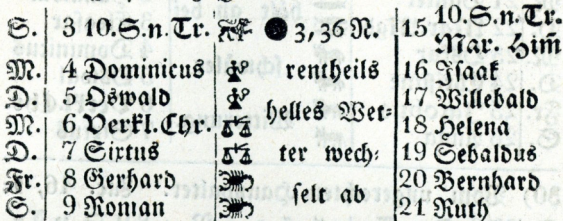 S. 3 10.S.n.Tr. ● 3,36 N. 15 10.S.n.Tr. Mar. Him̄
M. 4 Dominicus rentheils 16 Isaak
D. 5 Oswald helles Wet- 17 Willebald
M. 6 Verkl.Chr. 18 Helena
D. 7 Sixtus ter wech- 19 Sebaldus
Fr. 8 Gerhard selt ab 20 Bernhard
S. 9 Roman 21 Ruth